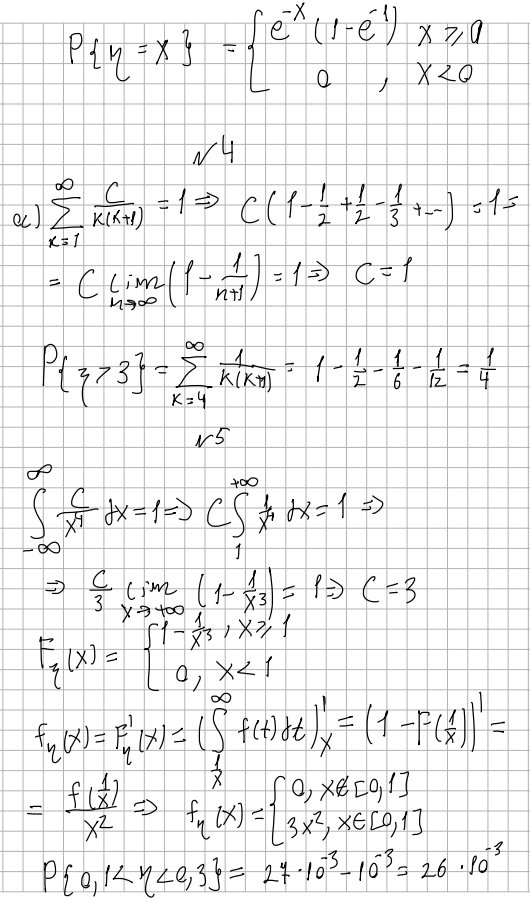 P{η = x} = { e^{-x} (1 - e^{-1}) x ≥ 0
0 , x < 0
N4
a) ∑_{k=1}^{∞} C/(k(k+1)) = 1 ⇒ C (1 - 1/2 + 1/2 - 1/3 + ...) = 1 =
= C lim_{n→∞} (1 - 1/(n+1)) = 1 ⇒ C = 1
P{η > 3} = ∑_{k=4}^{∞} 1/(k(k+1)) = 1 - 1/2 - 1/6 - 1/12 = 1/4
N5
∫_{-∞}^{∞} C/x^4 dx = 1 ⇒ C ∫_{1}^{+∞} 1/x^4 dx = 1 ⇒
⇒ C/3 lim_{x→+∞} (1 - 1/x^3) = 1 ⇒ C = 3
F_η(x) = { 1 - 1/x^3 , x ≥ 1
0, x < 1
f_η(x) = F'_η(x) = (∫_{1/x}^{∞} f(t) dt)'_x = (1 - F(1/x))' =
= f(1/x)/x^2 ⇒ f_η(x) = { 0, x ∉ [0,1]
3x^2, x ∈ [0,1]
P{0,1 < η < 0,3} = 27 · 10^{-3} - 10^{-3} = 26 · 10^{-3}